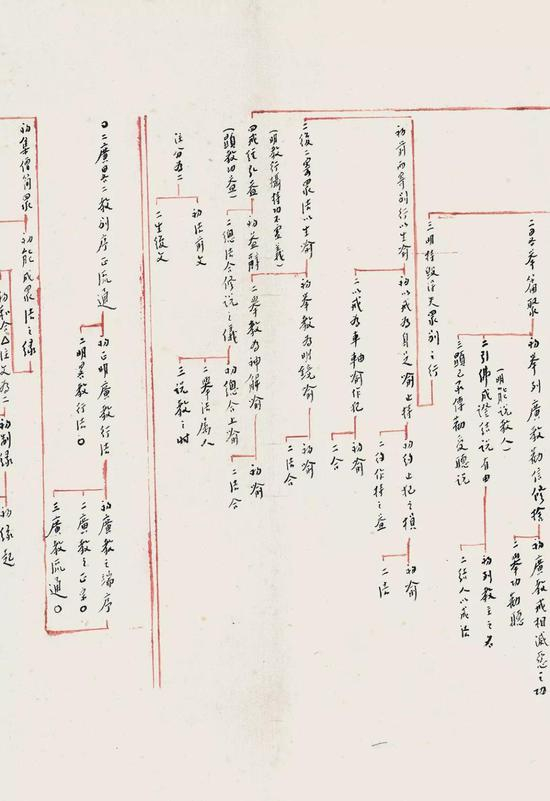 二正舉篇聚
初舉列廣教勸信修捨
初廣教戒相滅惡之功
二舉功勸聽
二引佛成證結說有由
(明能說教人)
初列教主之名
二結人以成法
三顯已承傳勸受聽說
三明持毀淨穢眾別之行
初前兩尋別行以生喻
初以戒為自足喻止持
初約止犯之損
初喻
二法
二約作持之益
二以戒為車軸喻作犯
初喻
二合
二後二雲眾法以生喻
(明教行攝持功不虛義)
初舉教為明鏡喻
初喻
二法合
二舉教為神解喻
初喻
二法合
四戒經弘益
(顯教功益)
初益解
二總法合修說之儀
初總合上喻
二舉法屬人
三說教之時
注分為二
初法前文
二生後文
○二廣畧二教別序正流通
初正明廣教行法
初廣教之端序
二廣教之正宗○
三廣教流通○
二明畧教行法○
初集僧簡眾
初能成眾法之緣
初制緣
初緣起